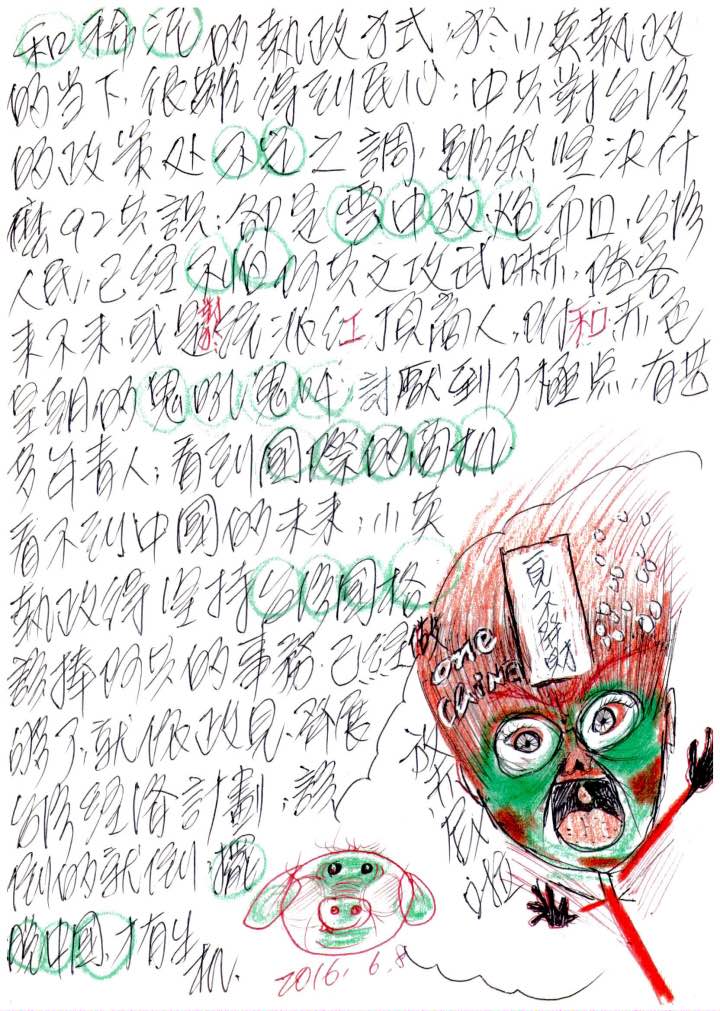 和稀泥的執政方式,於小英執政
的当下,很難得到民心;中共對台湾
的政策处不定之調,雖然坚決什
麼92共識;卻是雲中放炮而且,台湾
人民,已經不怕阿共文攻武嚇,陸客
來不來,或是對於統派紅頂商人,附和赤色
皇朝的鬼吼鬼叫,討厭到了極点,有甚
多年青人;看到國際的商机
看不到中國的未來;小英
執政得坚持台湾國格
該捧阿共的事務.已經做
夠了,就依政見、發展
台湾經济計劃,該
倒的就倒;擺
脫中國,才有生
机.
見不發財
one
CHINA
2016. 6. 8